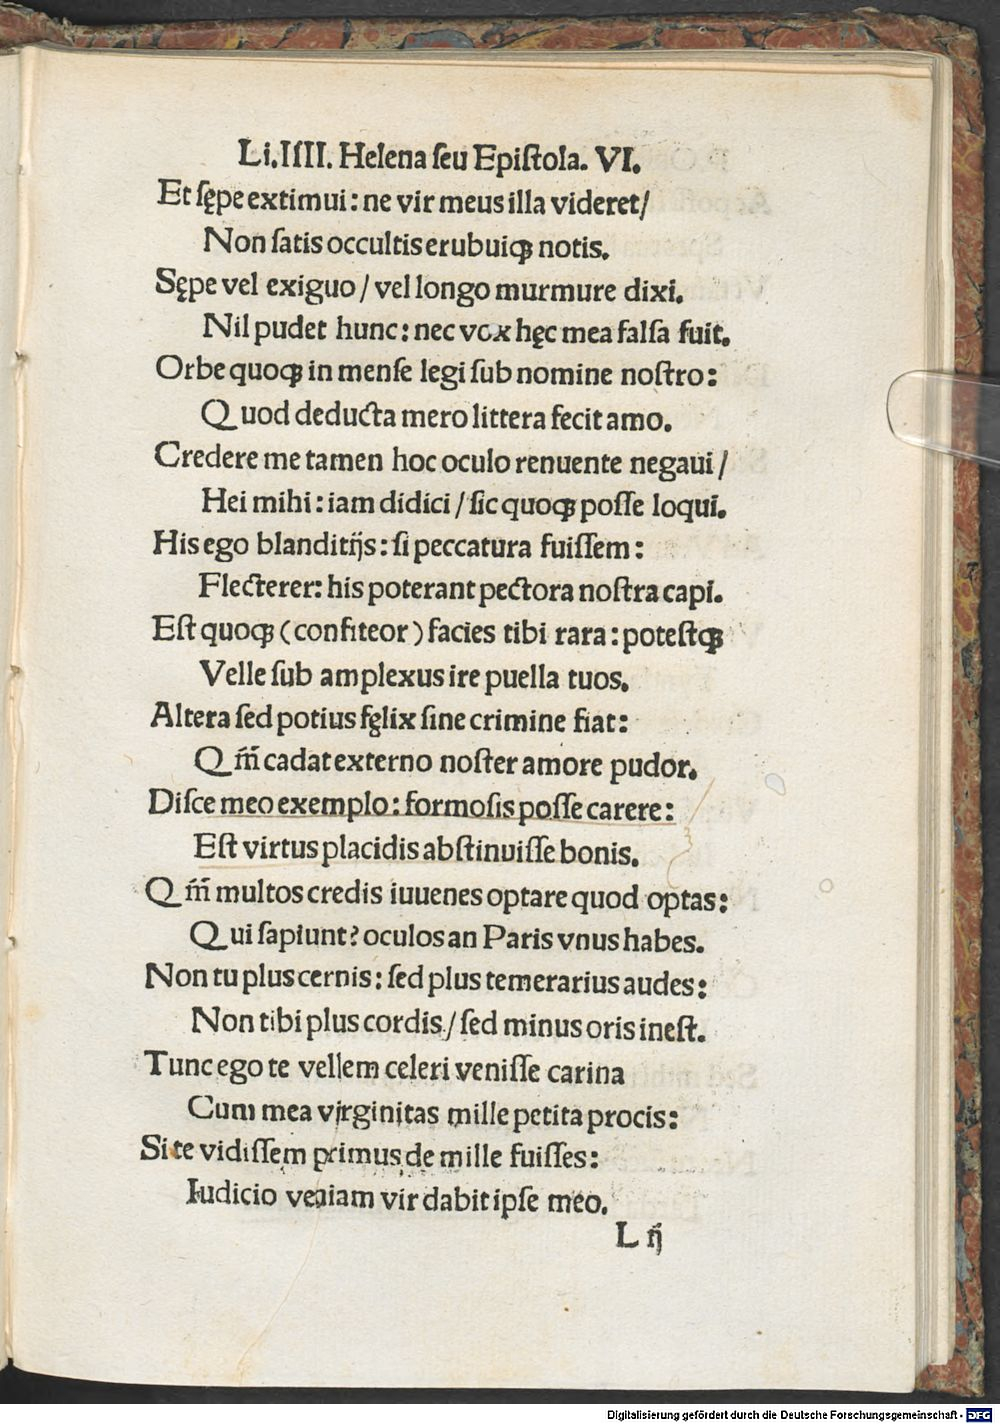 Li.IſII. Helena ſeu Epiſtola. VI.
Et ſępe extimui: ne vir meus illa videret/
Non ſatis occultis erubuiqꝫ notis.
Sępe vel exiguo / vel longo murmure dixi.
Nil pudet hunc: nec vox hęc mea falſa fuit.
Orbe quoqꝫ in menſe legi ſub nomine noſtro:
Quod deducta mero littera fecit amo.
Credere me tamen hoc oculo renuente negaui /
Hei mihi: iam didici / ſic quoqꝫ poſſe loqui.
His ego blanditijs: ſi peccatura fuiſſem:
Flecterer: his poterant pectora noſtra capi.
Eſt quoqꝫ (confiteor) facies tibi rara: poteſtqꝫ
Velle ſub amplexus ire puella tuos.
Altera ſed potius fęlix ſine crimine fiat:
Qm̃ cadat externo noſter amore pudor.
Diſce meo exemplo: formoſis poſſe carere:
Eſt virtus placidis abſtinuiſſe bonis.
Qm̃ multos credis iuuenes optare quod optas:
Qui ſapiunt? oculos an Paris vnus habes.
Non tu plus cernis: ſed plus temerarius audes:
Non tibi plus cordis / ſed minus oris ineſt.
Tunc ego te vellem celeri veniſſe carina
Cum mea virginitas mille petita procis:
Si te vidiſſem primus de mille fuiſſes:
Iudicio veniam vir dabit ipſe meo.
L ij
Digitalisierung gefördert durch die Deutsche Forschungsgemeinschaft - DFG